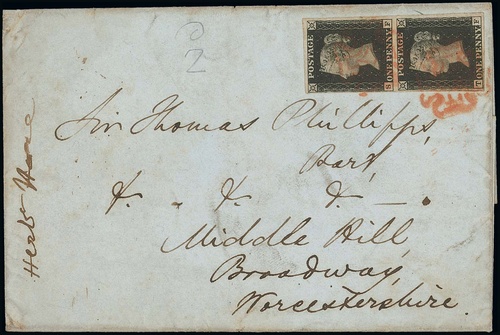 POSTAGE POSTAGE
ONE PENNY ONE PENNY
S F T F
2
Sir Thomas Phillipps,
Bart,
&. - & &. - .
Middle Hill,
Broadway,
Worcestershire.